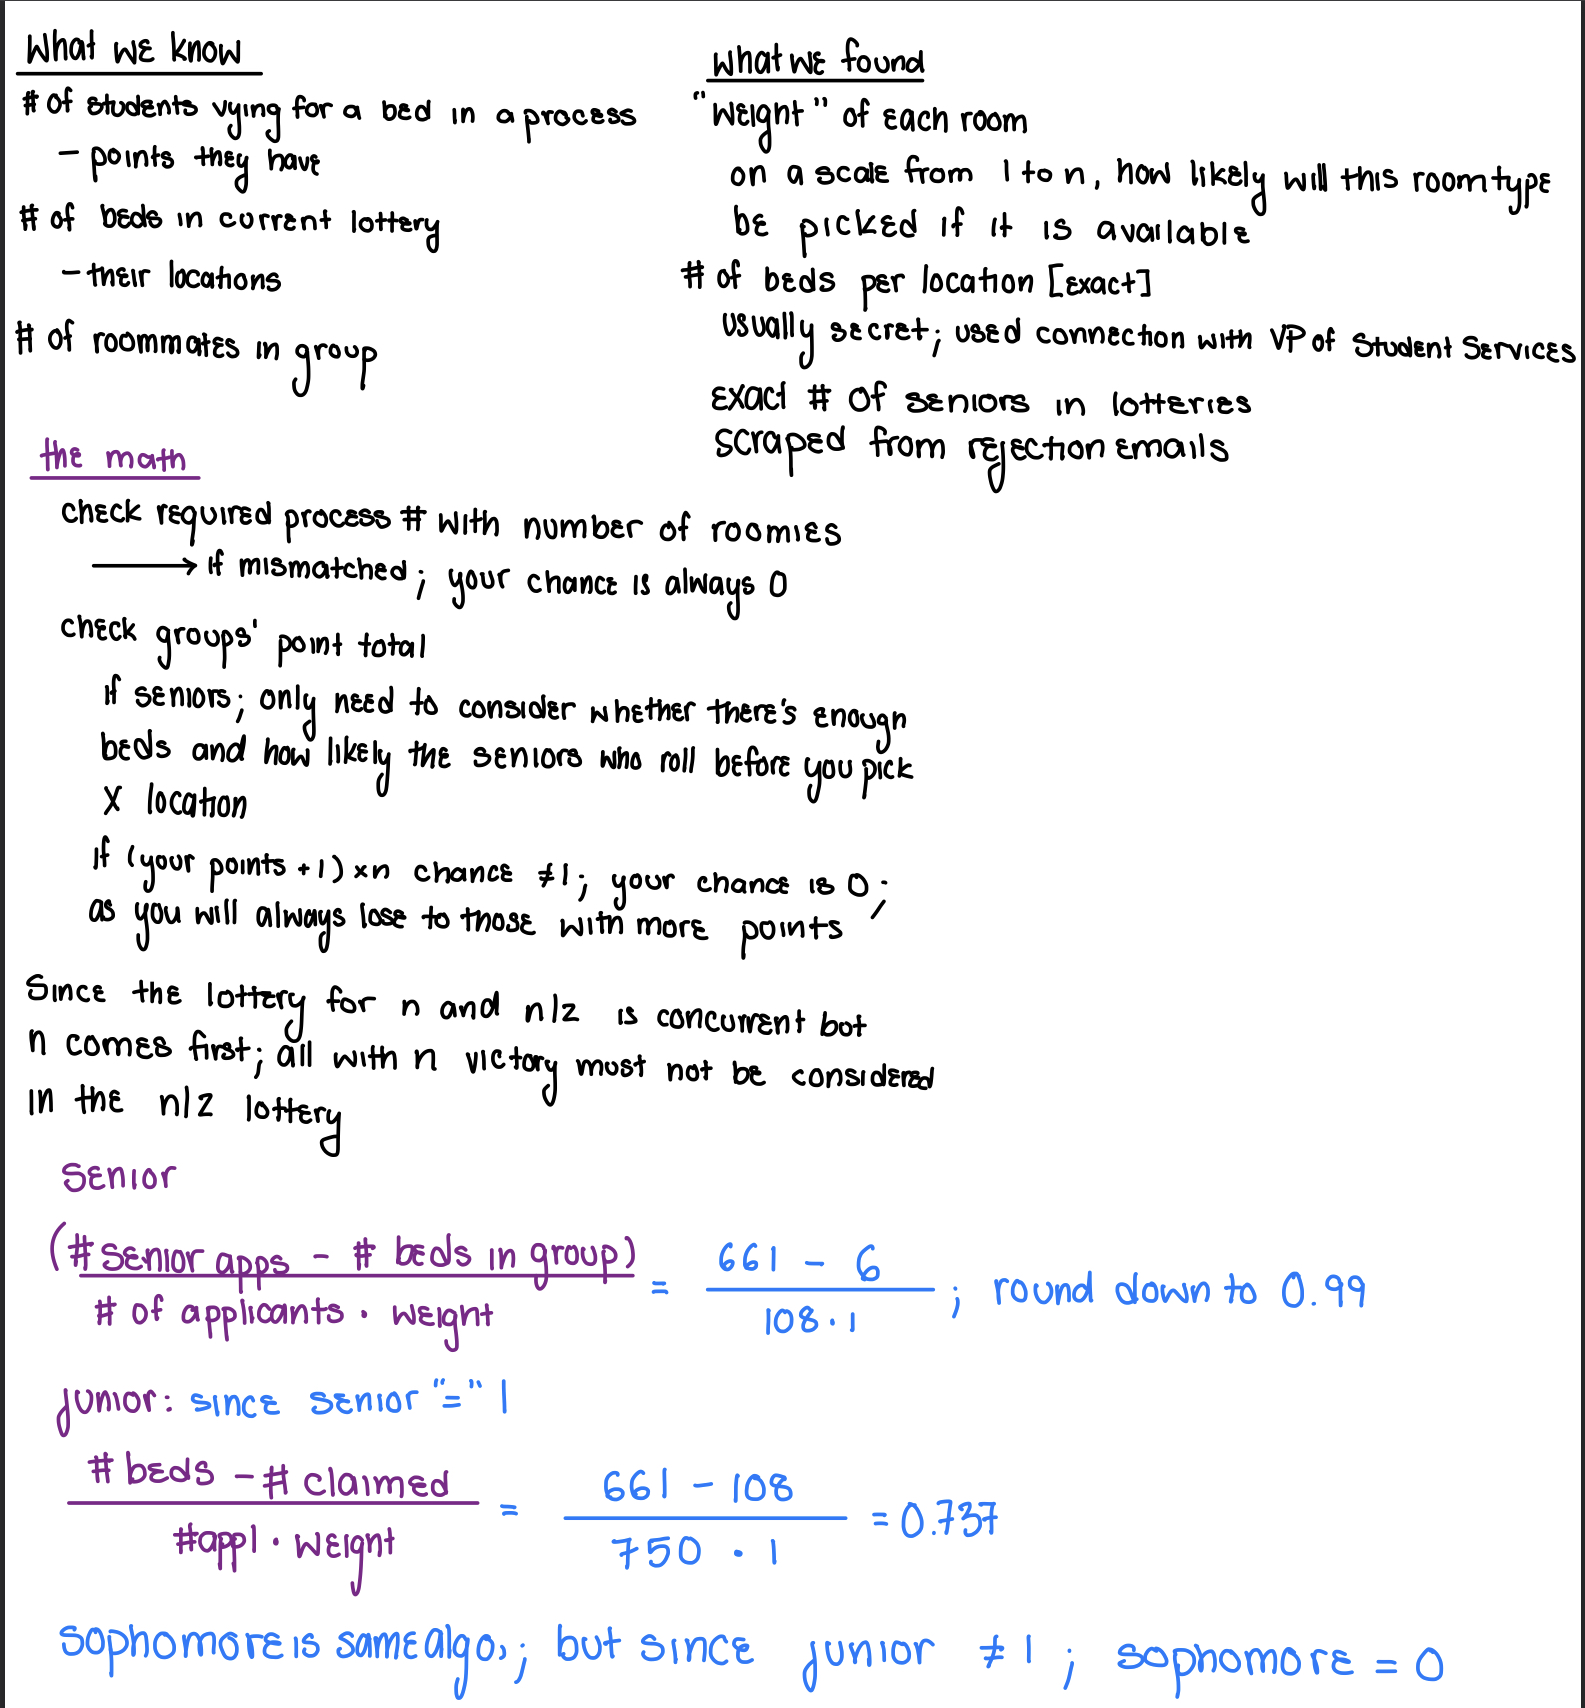 What we know
# of students vying for a bed in a process
- points they have
# of beds in current lottery
- their locations
# of roommates in group
what we found
"weight" of each room
on a scale from 1 to n, how likely will this room type
be picked if it is available
# of beds per location [exact]
usually secret; used connection with VP of Student Services
exact # of seniors in lotteries
scraped from rejection emails
the math
check required process # with number of roomies
→ if mismatched; your chance is always 0
check groups' point total
if seniors; only need to consider whether there's enough
beds and how likely the seniors who roll before you pick
X location
if (your points +1) xn chance ≠1; your chance is 0;
as you will always lose to those with more points
Since the lottery for n and n/2 is concurrent but
n comes first; all with n victory must not be considered
in the n/2 lottery
Senior
(# senior apps - # beds in group)
# of applicants · weight
=
661 - 6
108 · 1
; round down to 0.99
junior: since senior "=" 1
# beds - # claimed
#appl · weight
=
661 - 108
750 · 1
= 0.737
sophomore is same algo,; but since junior ≠ 1 ; sophomore = 0